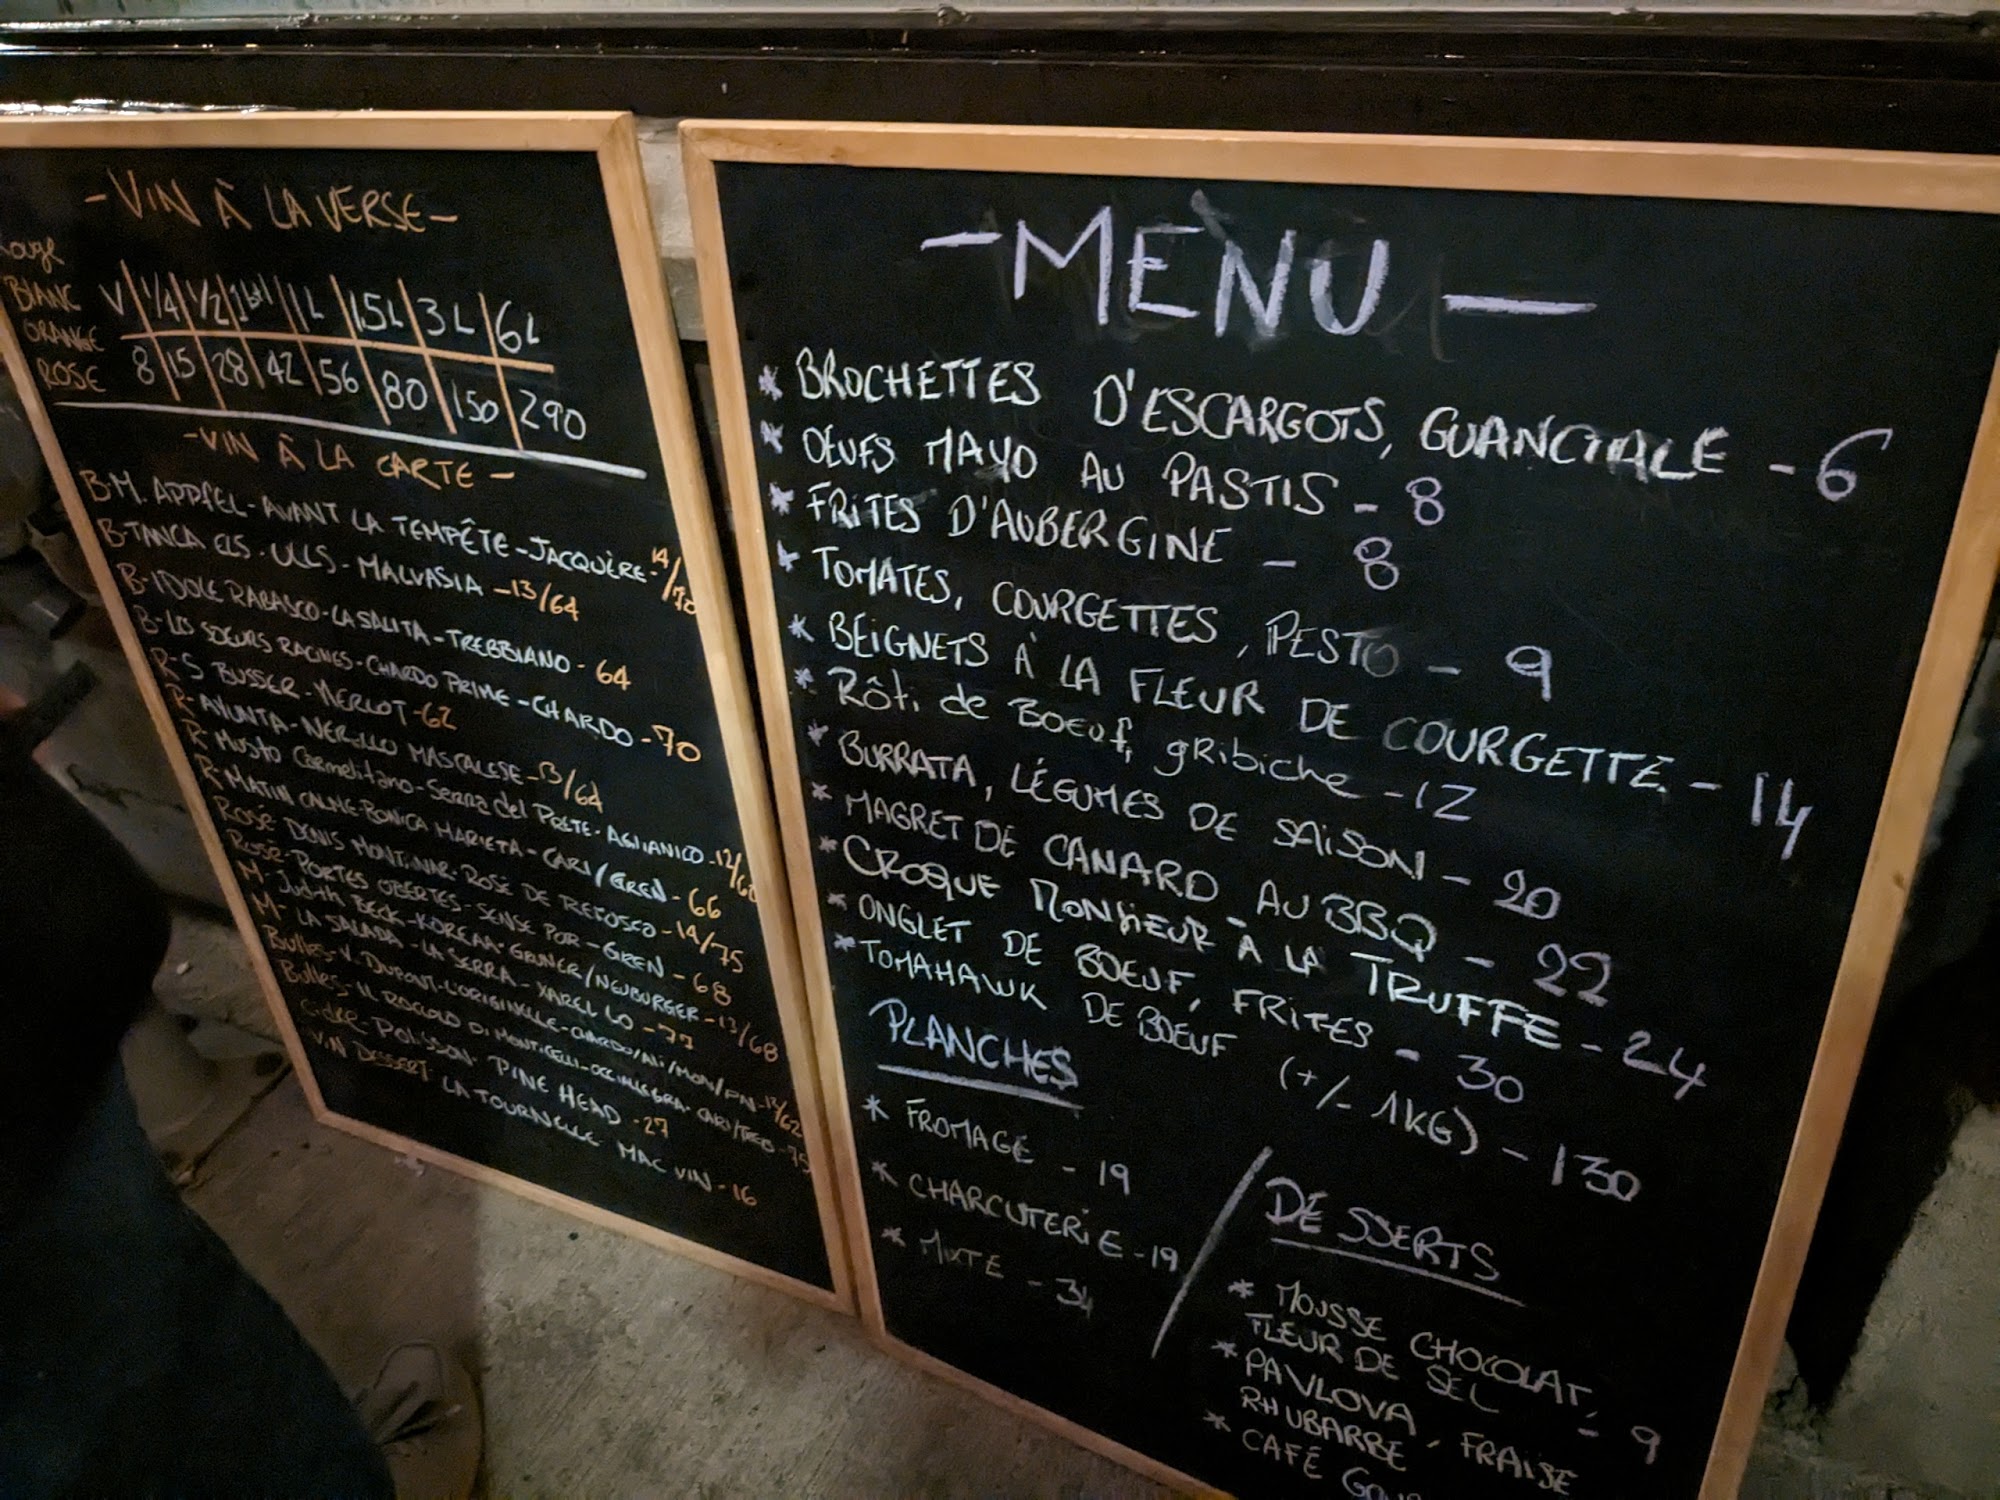 - VIN À LA VERSE -
Rouge
BLANC
ORANGE
ROSE
V 1/4 1/2 1btl 1L 1.5L 3L 6L
8 15 28 42 56 80 150 290
- VIN À LA CARTE -
B- M. APPFEL - AVANT LA TEMPÊTE - JACQUÈRE - 14/70
B- TANCA ELS - ULLS - MALVASIA - 13/64
B- IDOLE RABASCO - LA SALITA - TREBBIANO - 64
B- LES SOEURS RACINES - CHARDO PRIME - CHARDO - 70
R- S BUSSER - MERLOT - 62
R- AYUNTA - NERELLO MASCALESE - 13/64
R- MUSTO Carmelitano - Serra del Prete - AGLIANICO - 12/62
R- MATIN CALME - BONICA MARIETA - CARI/GREN - 66
Rosé- DENIS MONTANAR - ROSE DE REFOSCO - 14/75
Rosé- PORTES OBERTES - SENSE POR - GREN - 68
M- Judith BECK - KOREAA - GRUNER/NEUBURGER - 13/68
M- LA SALADA - LA SERRA - XAREL LO - 77
Bulles- V. DUPONT - L'ORIGINELLE - CHARDO/ALI/MON/PN - 12/62
Bulles- IL ROCCOLO DI MONTICELLI - CARI/TREB - 75
Cidre- POLISSON - PINE HEAD - 27
VIN DESSERT- LA TOURNELLE - MAC VIN - 16
- MENU -
* BROCHETTES D'ESCARGOTS, GUANCIALE - 6
* OEUFS MAYO AU PASTIS - 8
* FRITES D'AUBERGINE - 8
* TOMATES, COURGETTES, PESTO - 9
* BEIGNETS À LA FLEUR DE COURGETTE - 14
* Rôti de Boeuf, gribiche - 12
* BURRATA, LÉGUMES DE SAISON - 20
* MAGRET DE CANARD AU BBQ - 22
* CROQUE MONSIEUR À LA TRUFFE - 24
* ONGLET DE BOEUF, FRITES - 30
* TOMAHAWK DE BOEUF (+/- 1KG) - 130
PLANCHES
* FROMAGE - 19
* CHARCUTERIE - 19
* MIXTE - 34
DESSERTS
* MOUSSE CHOCOLAT,
FLEUR DE SEL - 9
* PAVLOVA, FRAISE
RHUBARBE
* CAFÉ